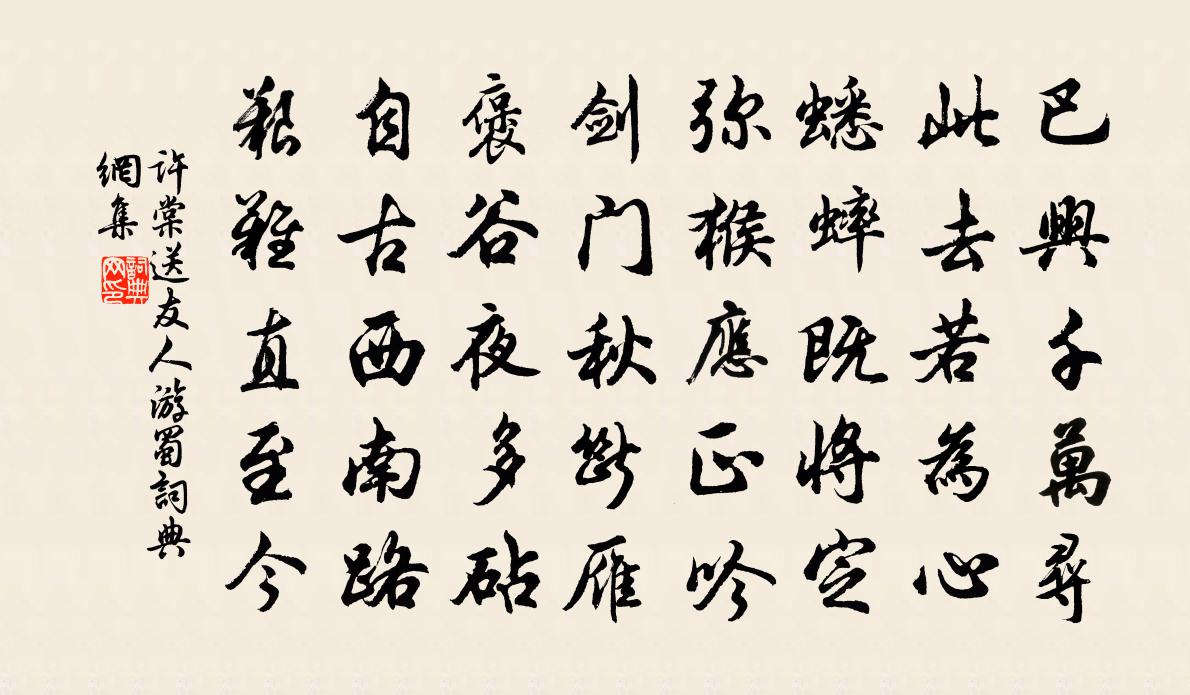 巴興千萬尋
此去若為心
蟋蟀既將定
弥猴應正吟
剑门秋斷雁
褒谷夜多砧
自古西南路
艱難直至今
許棠送友人游蜀詞典
網集
詞典網印